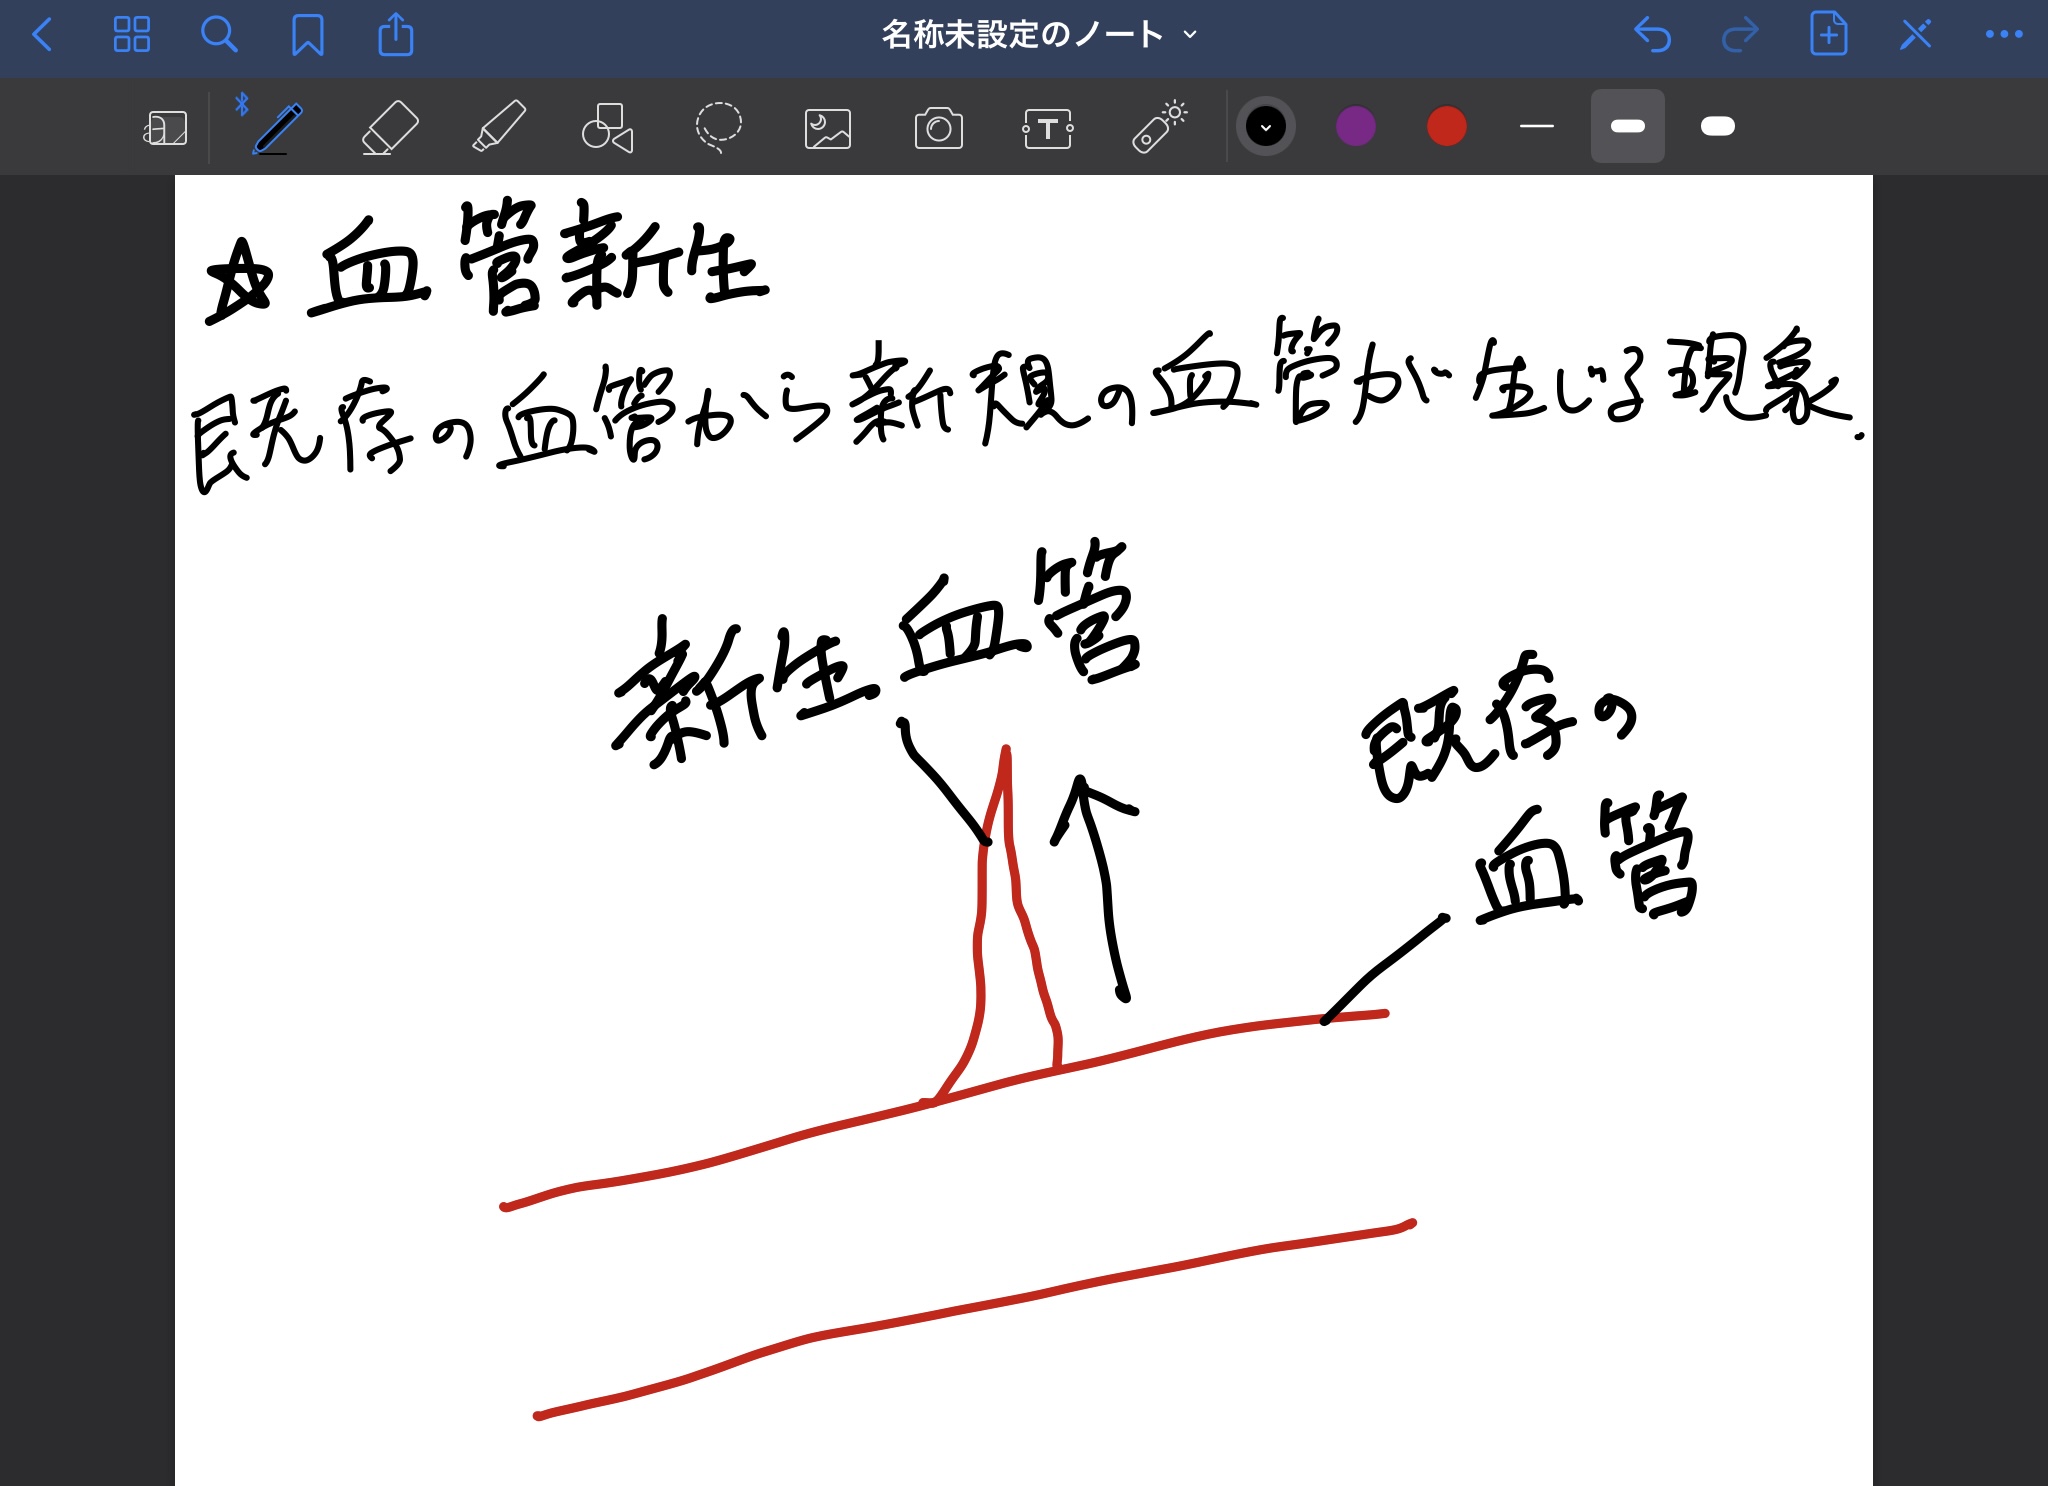 名称未設定のノート
☆ 血管新生
既存の血管から新規の血管が生じる現象.
新生血管
既存の
血管